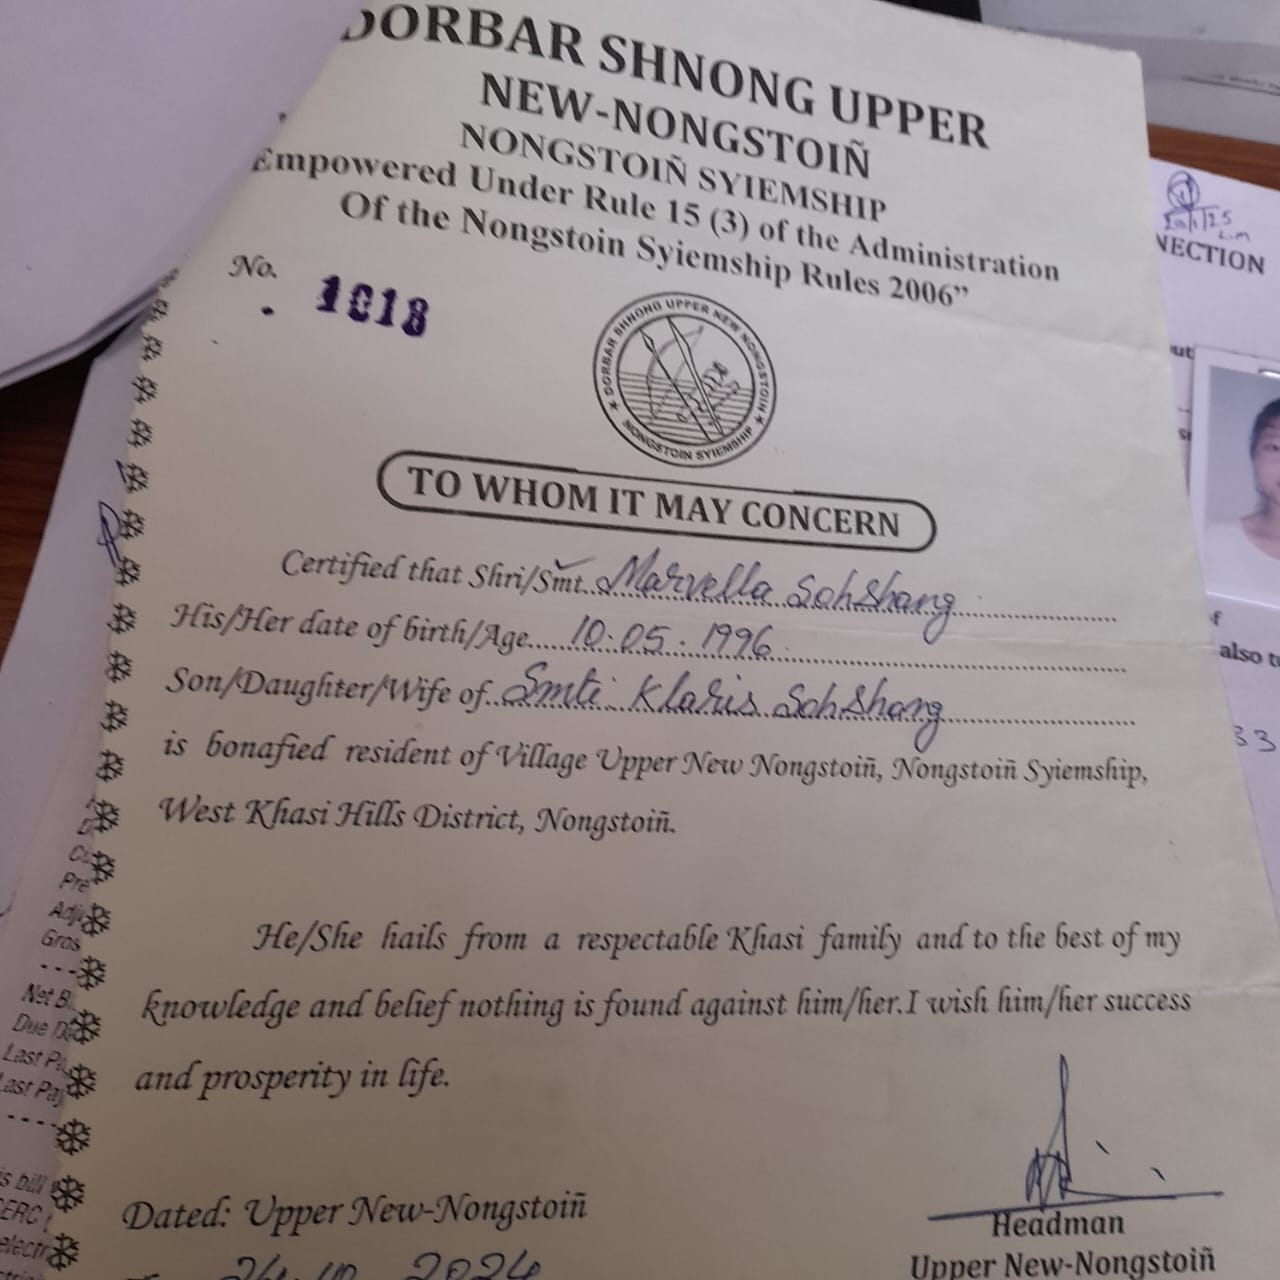 DORBAR SHNONG UPPER
NEW-NONGSTOIÑ
NONGSTOIÑ SYIEMSHIP
Empowered Under Rule 15 (3) of the Administration
Of the Nongstoin Syiemship Rules 2006”
No. 1018
DORBAR SHNONG UPPER NEW NONGSTOIN
NONGSTOIN SYIEMSHIP
TO WHOM IT MAY CONCERN
Certified that Shri/Smt. Marvella Sohshang
His/Her date of birth/Age 10.05.1996
Son/Daughter/Wife of Smti Klaris Sohshang
is bonafied resident of Village Upper New Nongstoiñ, Nongstoiñ Syiemship,
West Khasi Hills District, Nongstoiñ.
He/She hails from a respectable Khasi family and to the best of my
knowledge and belief nothing is found against him/her.I wish him/her success
and prosperity in life.
Dated: Upper New-Nongstoiñ
2024
Headman
Upper New-Nongstoiñ
NECTION
also
33
Pre
Gros
Net B
Due
Last
Last Pay
bill
ERC